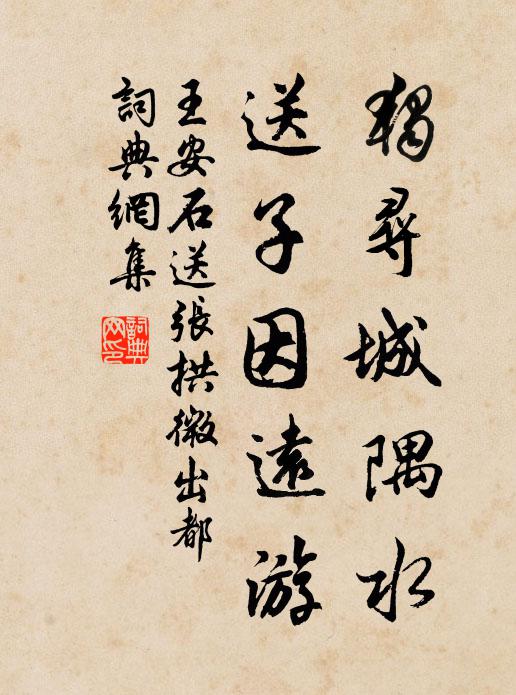 獨尋城隅水
送子因遠游
王安石送張拱微出都
詞典網集
詞典網印